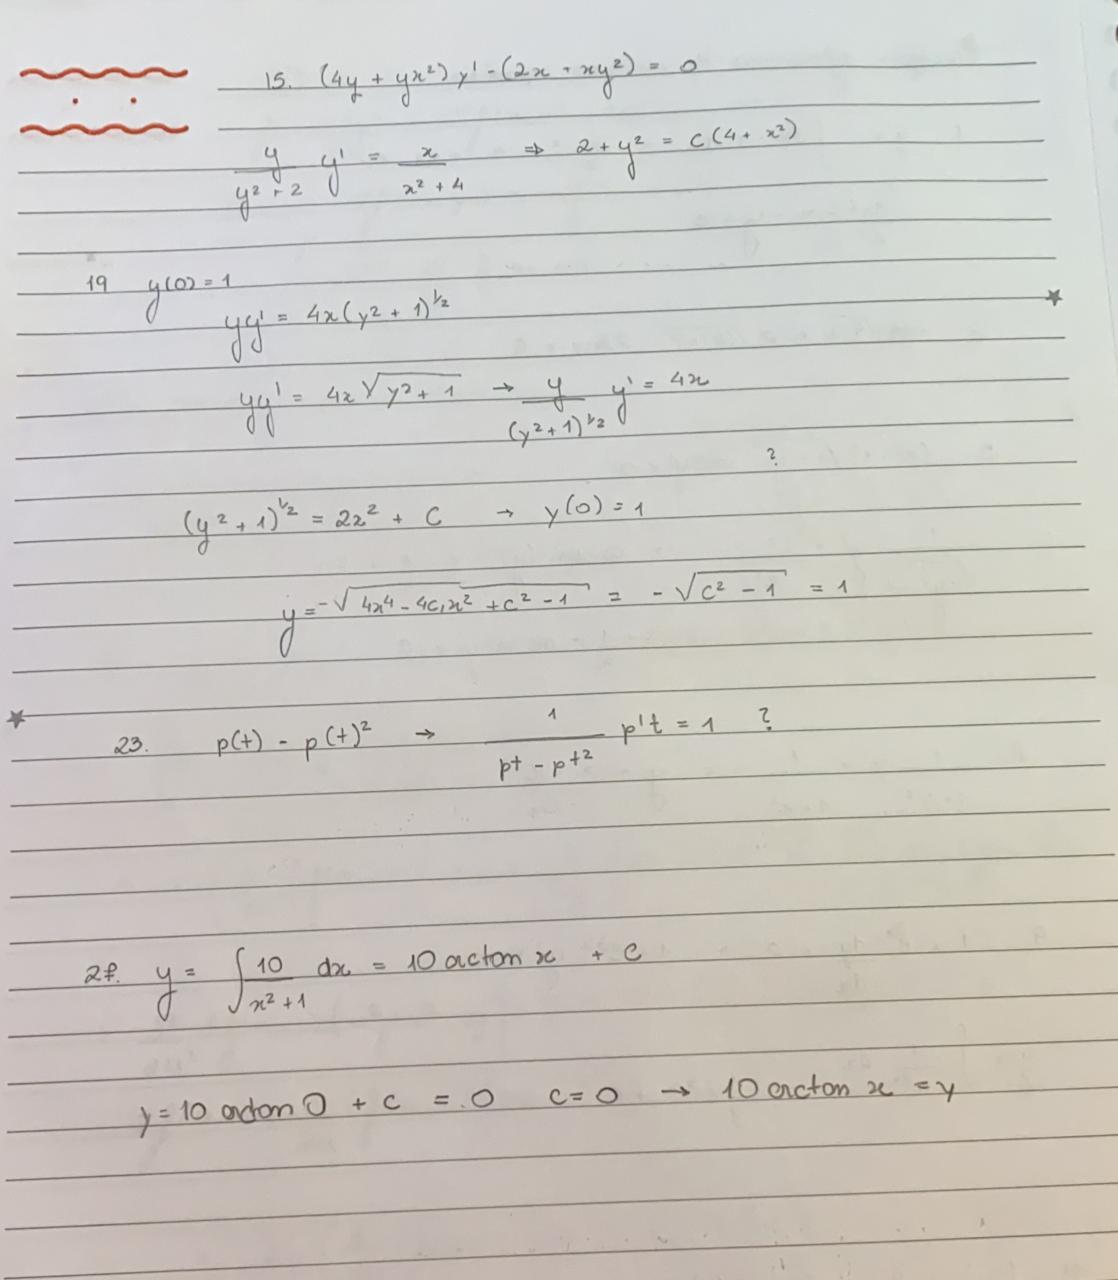 15. (4y + yx²) y' - (2x + xy²) = 0
y/(y² + 2) y' = x/(x² + 4) ⇒ 2 + y² = c(4 + x²)
19 y(0) = 1
yy' = 4x(y² + 1)^½
yy' = 4x √(y² + 1) → y/(y² + 1)^½ y' = 4x
?
(y² + 1)^½ = 2x² + C → y(0) = 1
y = -√(4x⁴ - 4c₁x² + c² - 1) = -√(c² - 1) = 1
23. p(t) - p(t)² → 1/(pt - pt²) p't = 1 ?
27. y = ∫ 10/(x² + 1) dx = 10 arctan x + C
y = 10 arctan 0 + c = 0 c = 0 → 10 arctan x = y